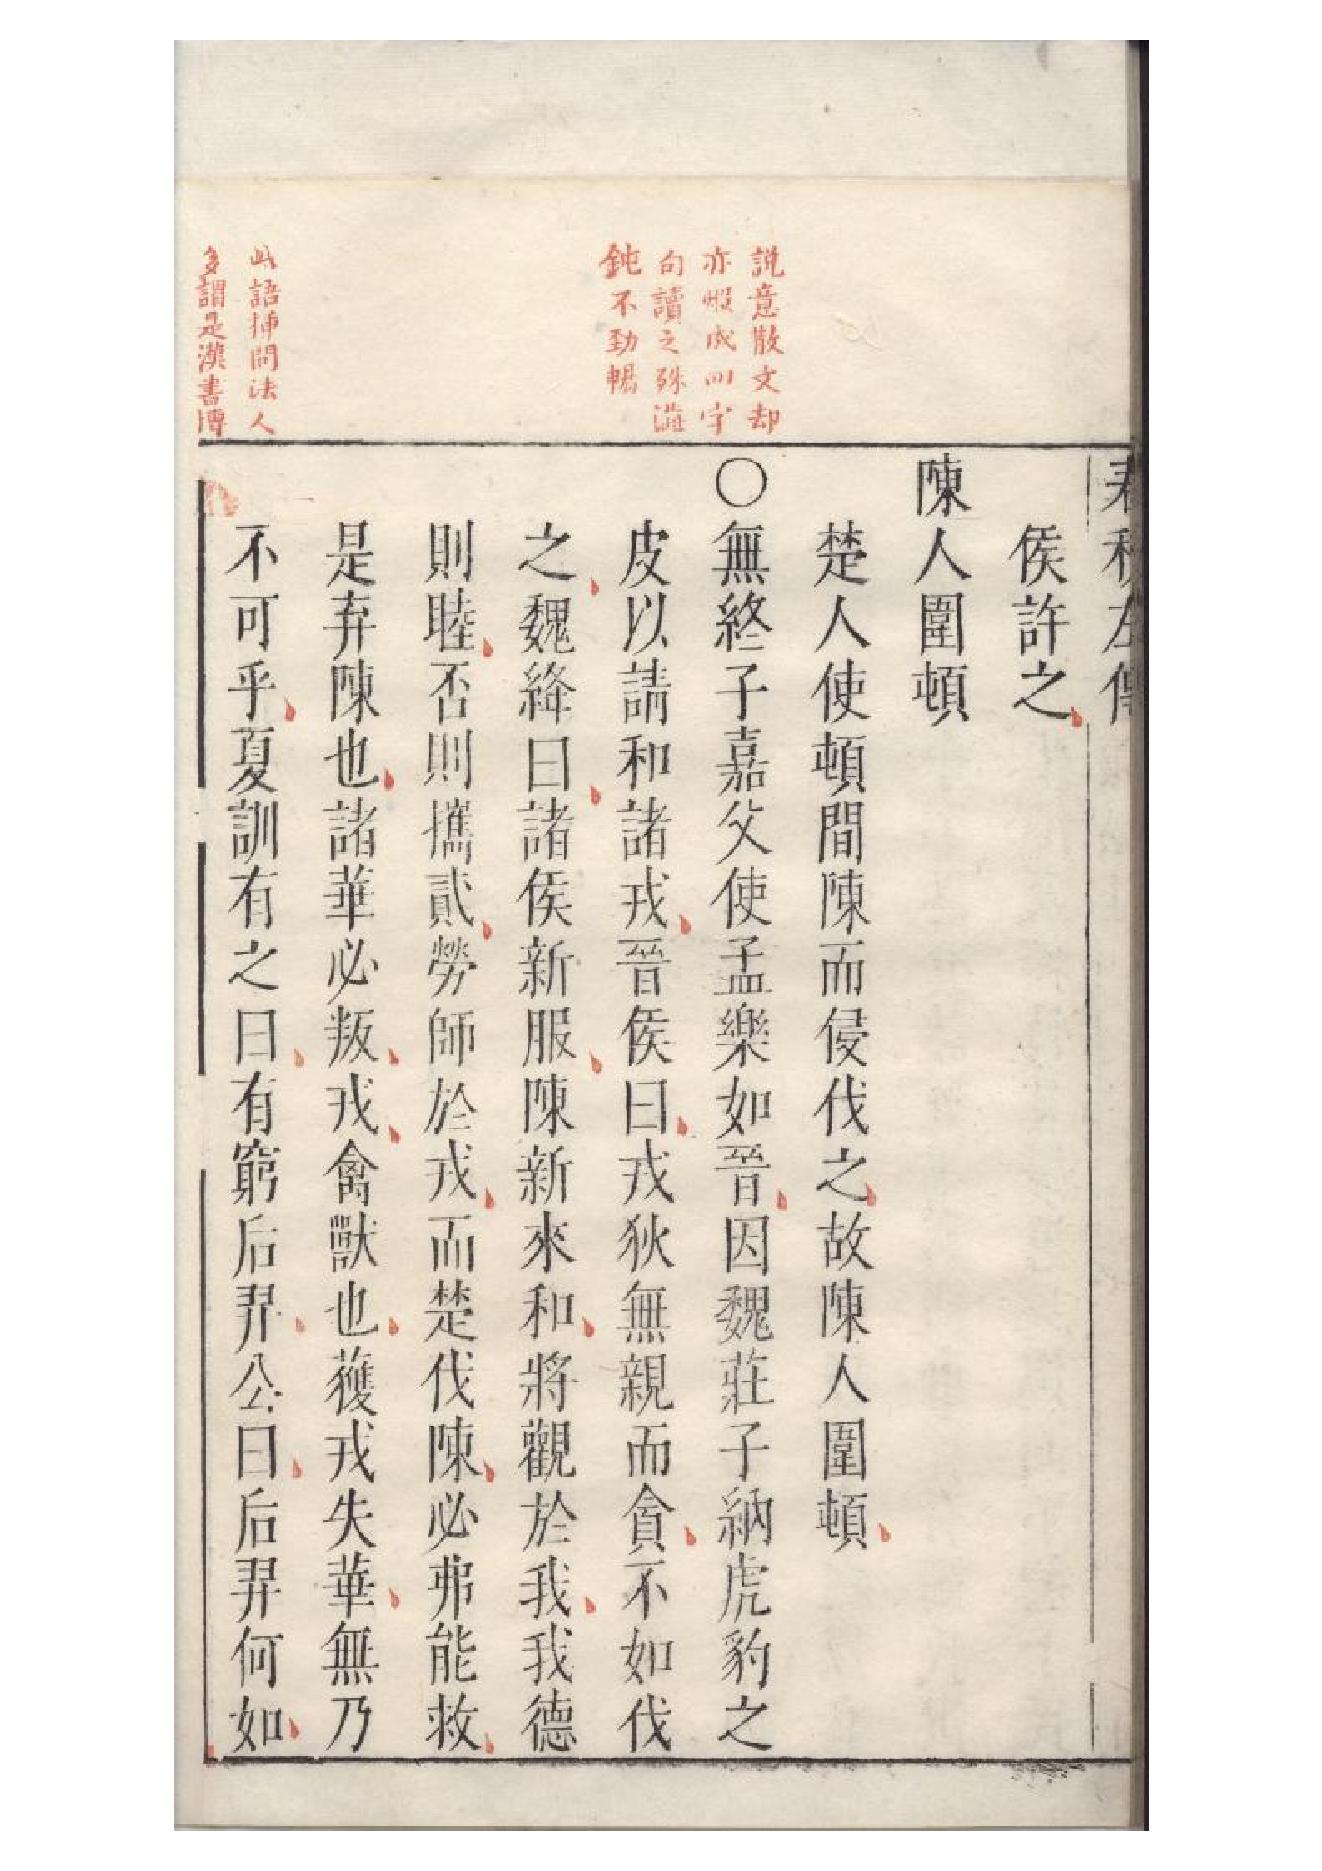 說意散文却
亦煆成四字
句讀之殊澁
鈍不勁暢
此語揷問法人
多謂是漢書傳
春秋左傳
侯許之
陳人圍頓
楚人使頓間陳而侵伐之故陳人圍頓
〇無終子嘉父使孟樂如晉因魏莊子納虎豹之
皮以請和諸戎晉侯曰戎狄無親而貪不如伐
之魏絳曰諸侯新服陳新來和將觀於我我德
則睦否則攜貳勞師於戎而楚伐陳必弗能救
是弃陳也諸華必叛戎禽獸也獲戎失華無乃
不可乎夏訓有之曰有窮后羿公曰后羿何如